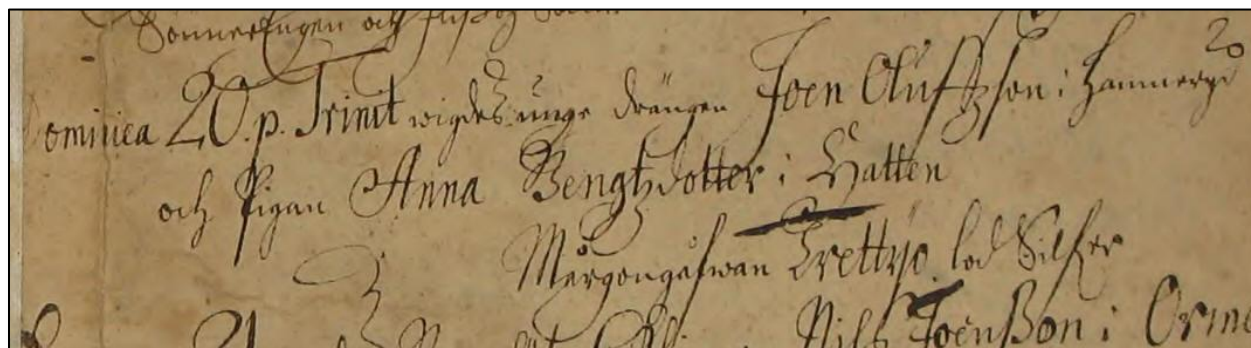 Sonnerengen och
20
Dominica 20. p. Trinit wigdes unge drängen Joen Oluffzson i Hammeryd
och Pigan Anna Bengtzdotter i Hatten
Mårgongåfwan Trettyo lod Silfer
Nils Joenßon i Orme